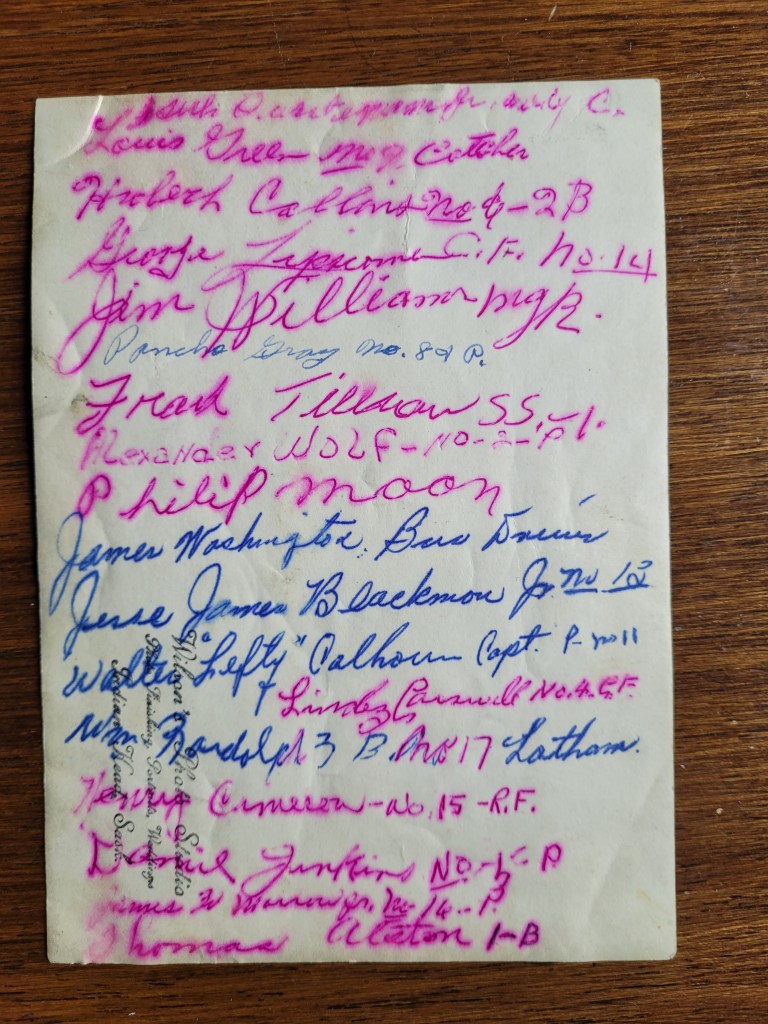 C.
Louis Green mgr. Catcher
Hubert Collins No 6 - 2B
George Lipscome C.F. No. 14
Jim Williams mgr.
Poncho Gray no. 8 P.
Frank Tillman SS.
Alexander Wolf - NO - 2 - P
Philip moon
James Washington. Bus Driver
Jesse James Blackmon Jr. no 13
Walter "Lefty" Calhoun Capt. P - no 11
Lindez Carswell No. 4. C.F.
Wm. Randolph 3 B. No 17 Latham.
Cameron - No. 15 - R.F.
Daniel Jenkins No. P
James W Morrow Jr. No 16 - P.
Thomas Alston 1-B
Wilson's Photo Studio
Photo Finishing, Portraits, Weddings
Indian Head, Sask.